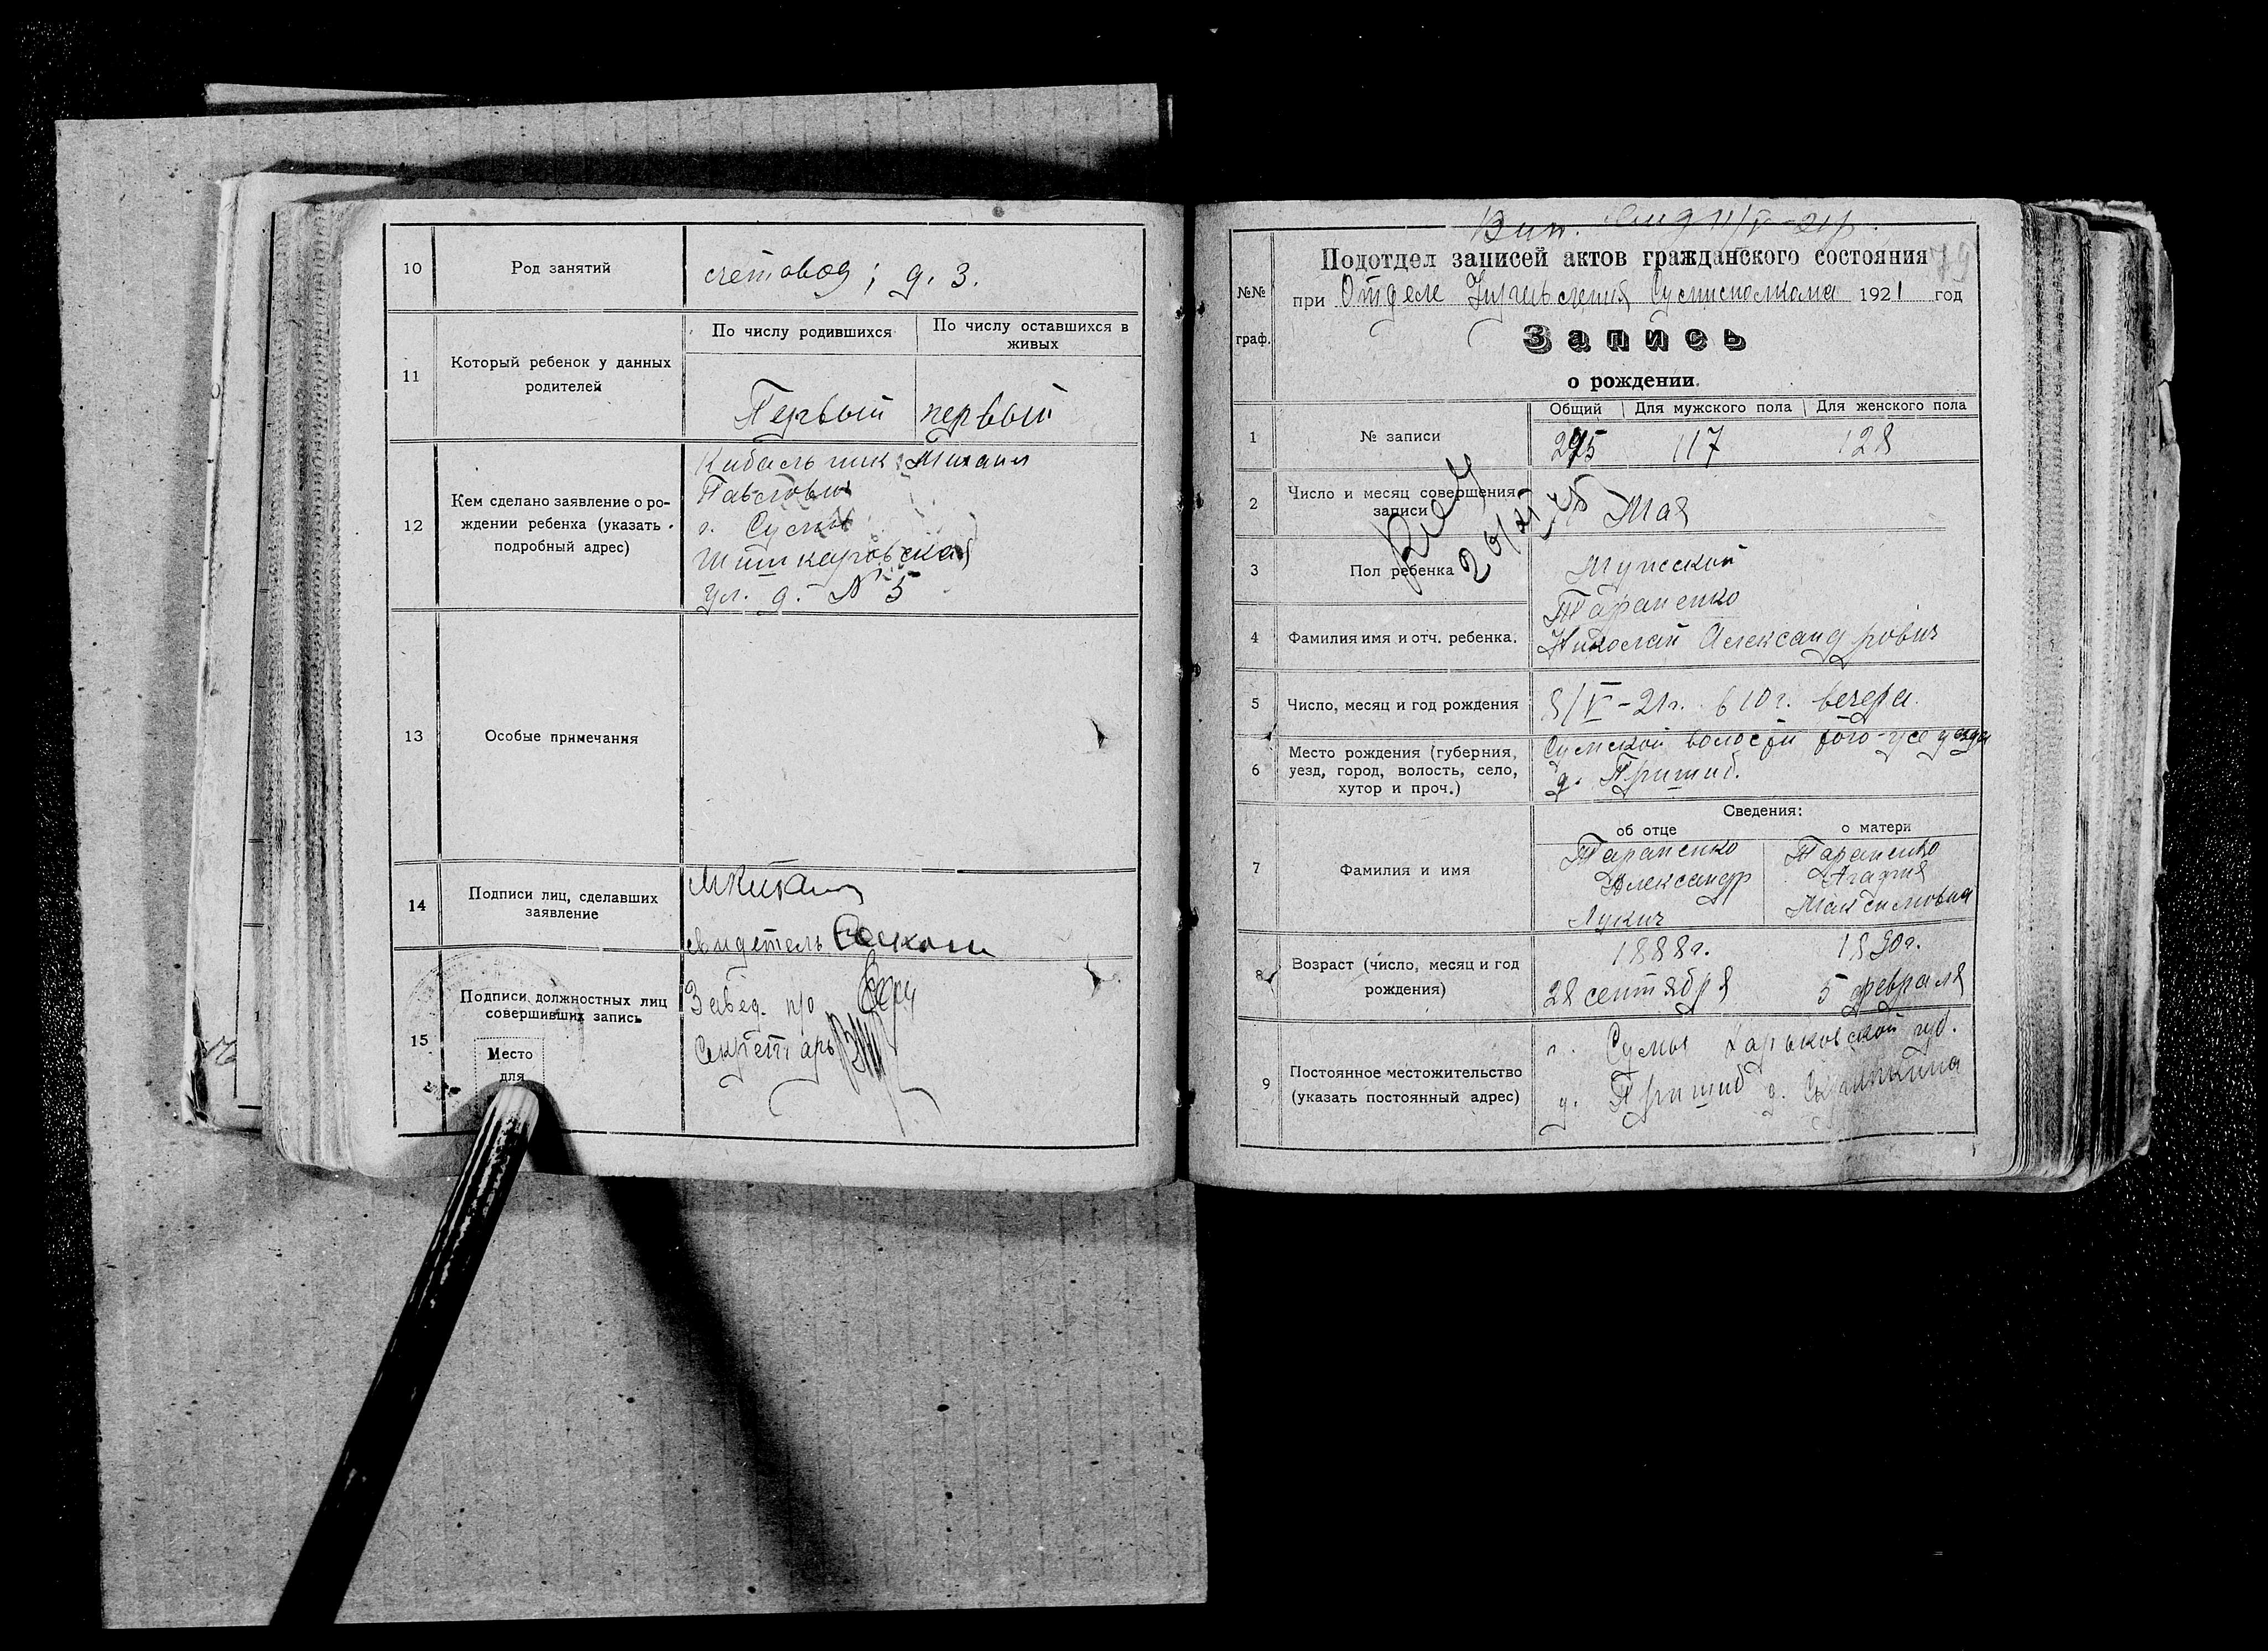 10 Род занятий счетовод; д. з.
11 Который ребенок у данных родителей
По числу родившихся
По числу оставшихся в живых
Первый первый
12 Кем сделано заявление о ро-
ждении ребенка (указать
подробный адрес)
Кибальник Михаил
Павлович
г. Сумы
ул. д. № 5
13 Особые примечания
14 Подписи лиц, сделавших
заявление
свидетель
15 Подписи должностных лиц
совершивших запись
Завед. п/о
Секретарь
Место
для
Подотдел записей актов гражданского состояния
№№
граф.
при Отделе Управления Сумисполкома 1921 год
Запись
о рождении.
Общий Для мужского пола Для женского пола
1 № записи 245 117 128
2 Число и месяц совершения
записи
Мая
3 Пол ребенка Мужской
4 Фамилия имя и отч. ребенка.
Тараненко
Николай Александрович
5 Число, месяц и год рождения 8/V-21г. в 10 г. вечера.
6 Место рождения (губерния,
уезд, город, волость, село,
хутор и проч.)
Сумской волости
д. Пришиб.
Сведения:
об отце о матери
7 Фамилия и имя
Тараненко
Александр
Лукич
Тараненко
Агафия
Максимовна
8 Возраст (число, месяц и год
рождения)
1888г.
28 сентября
1890г.
5 февраля
9 Постоянное местожительство
(указать постоянный адрес)
г. Сумы Харьковской губ.
д. Пришиб д.